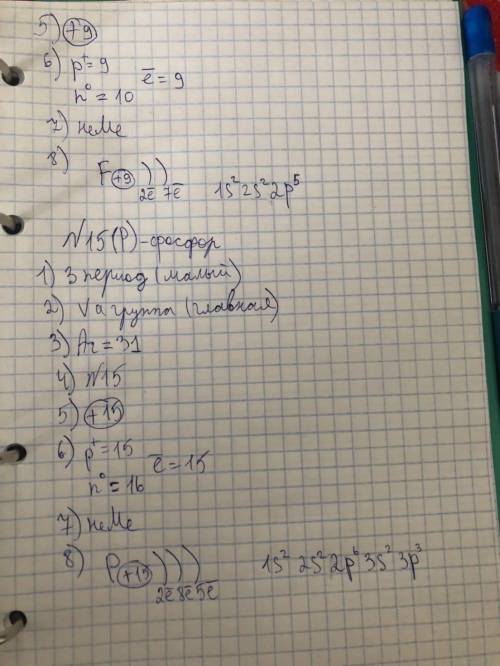 5) +9
6) p⁺=9 e̅=9
n⁰=10
7) неМе
8)
F +9 ) ) 1s² 2s² 2p⁵
2e̅ 7e̅
N15(P)-фосфор
1) 3 период (малый)
2) V а группа (главная)
3) Ar=31
4) N15
5) +15
6) p⁺=15 e̅=15
n⁰=16
7) неМе
8) P +15 ) ) ) 1s² 2s² 2p⁶ 3s² 3p³
2e̅ 8e̅ 5e̅